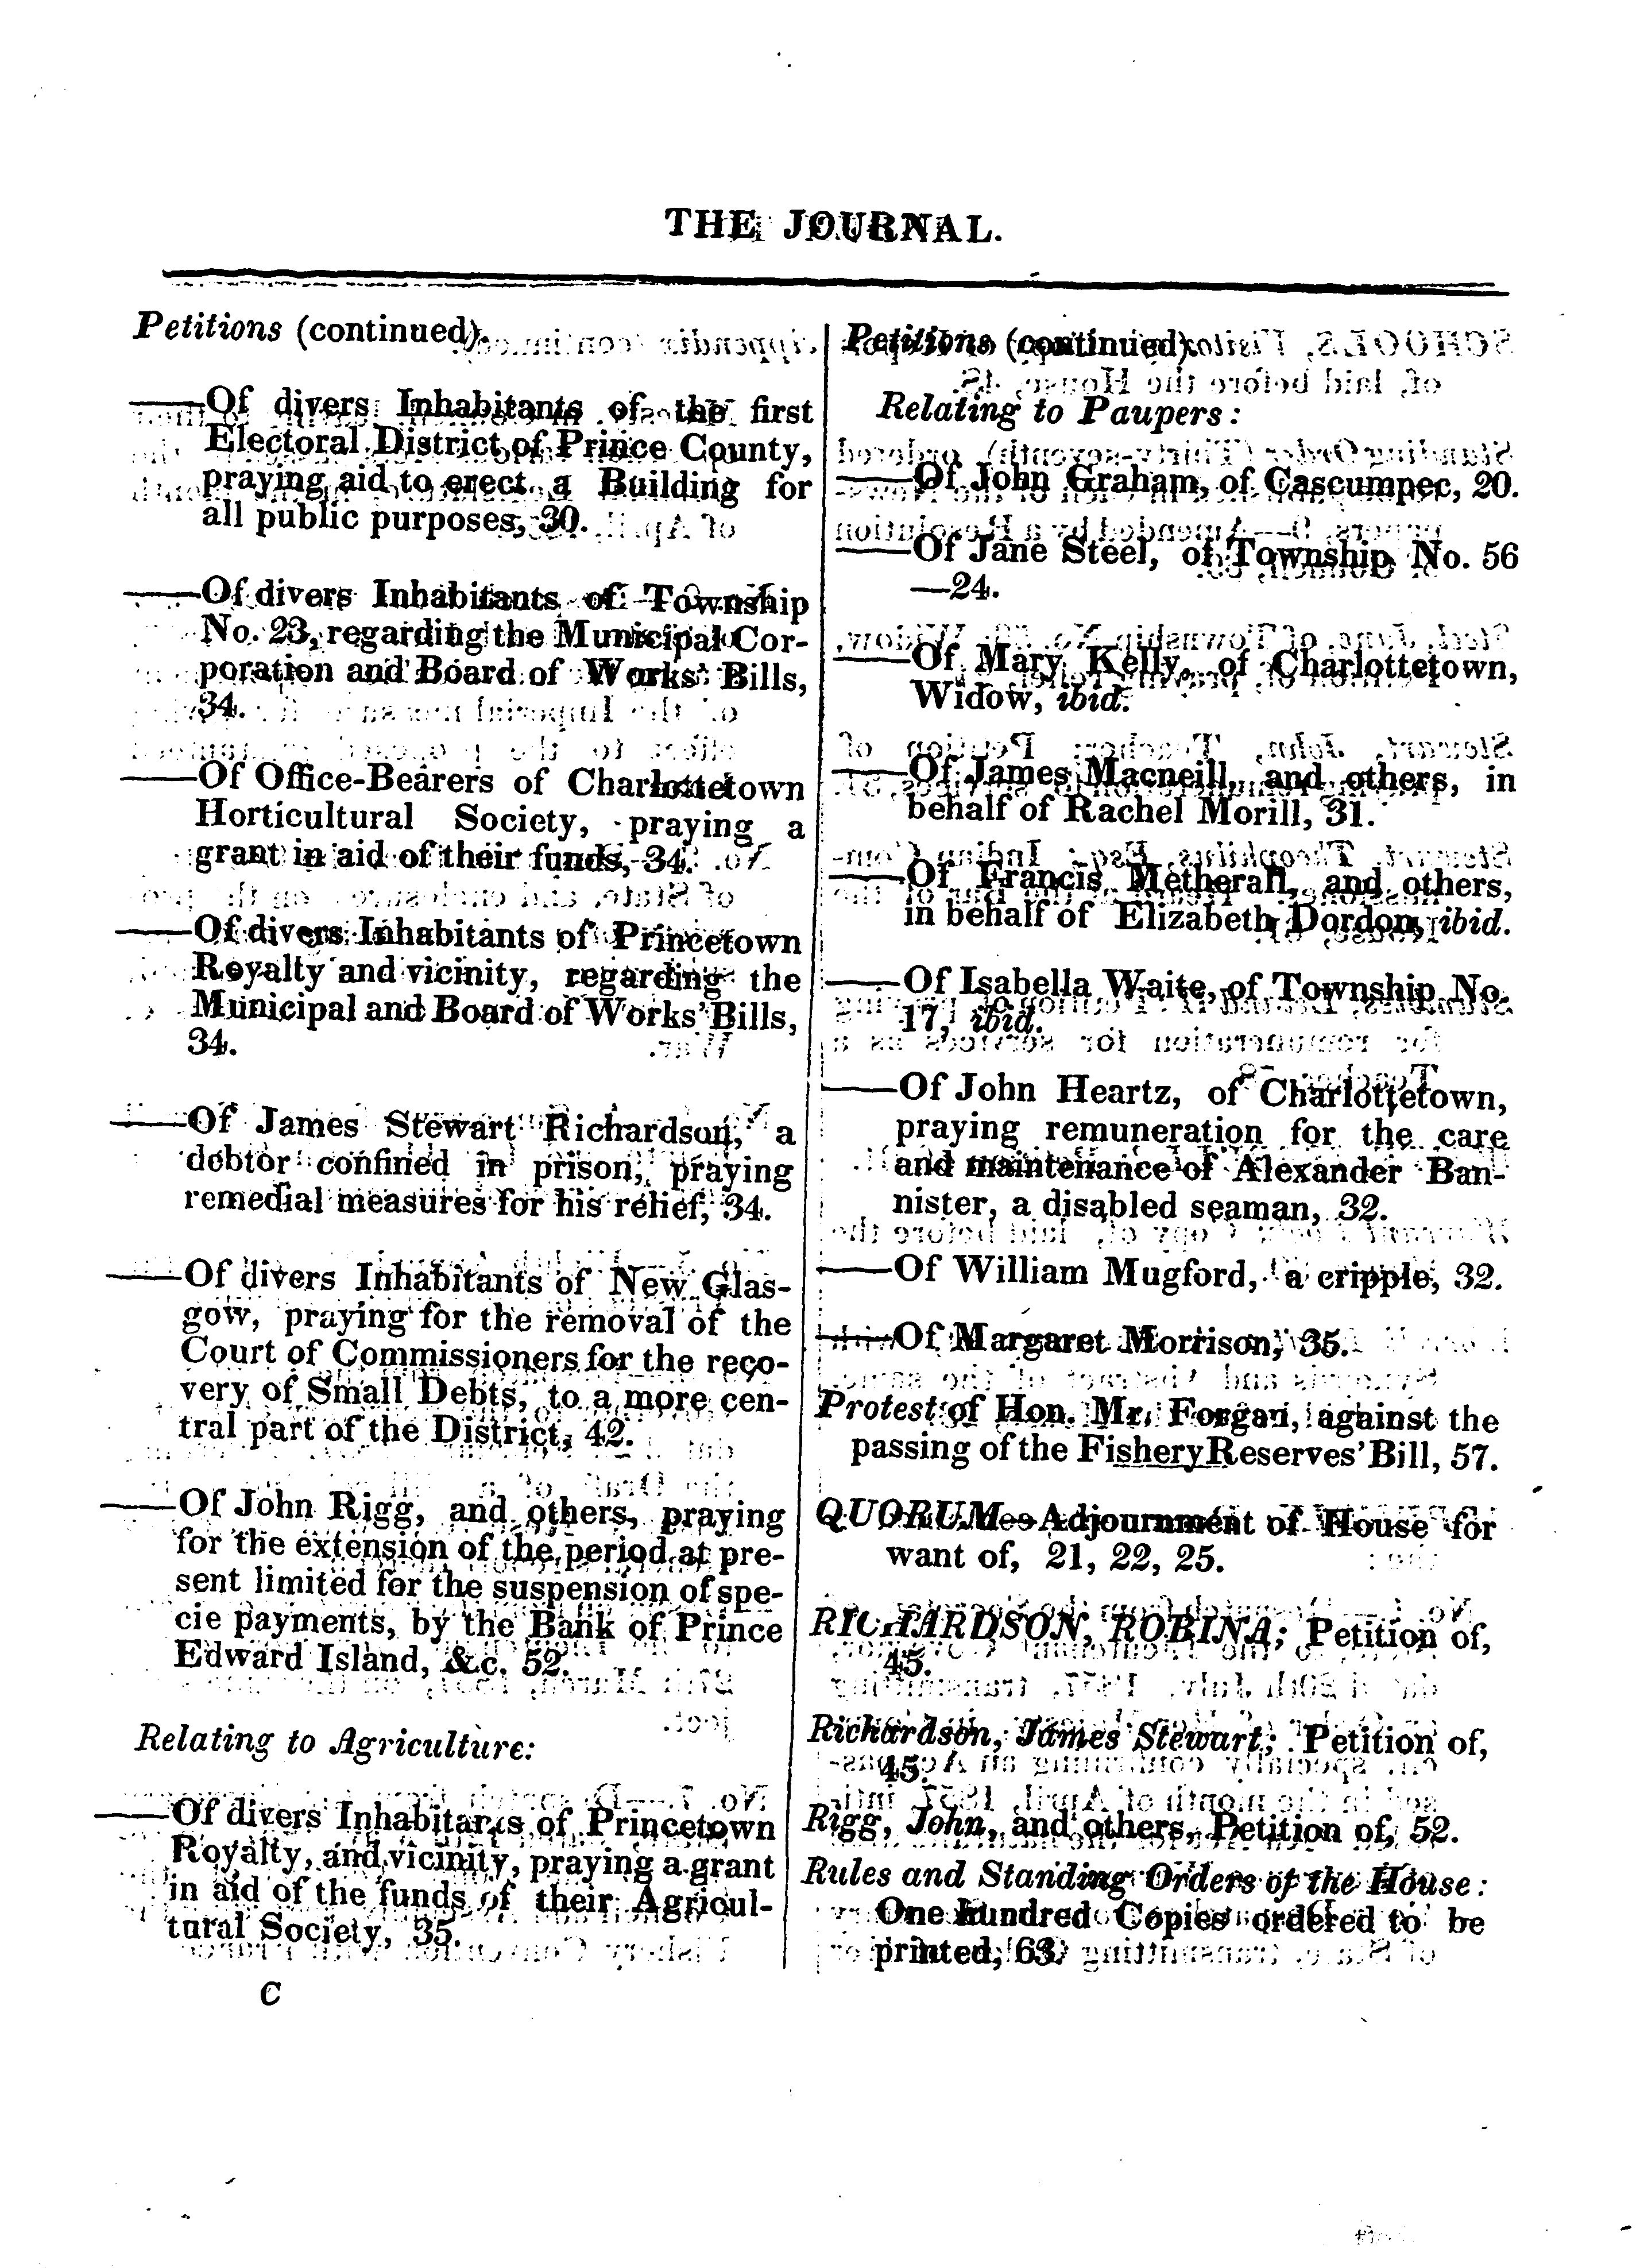 THE JOURNAL.
Petitions (continued).
——Of divers Inhabitants of the first
Electoral District of Prince County,
praying aid to erect a Building for
all public purposes, 30.
——Of divers Inhabitants of Township
No. 23, regarding the Municipal Cor-
poration and Board of Works' Bills,
34.
——Of Office-Bearers of Charlottetown
Horticultural Society, praying a
grant in aid of their funds, 34.
——Of divers Inhabitants of Princetown
Royalty and vicinity, regarding the
Municipal and Board of Works' Bills,
34.
——Of James Stewart Richardson, a
debtor confined in prison, praying
remedial measures for his relief, 34.
——Of divers Inhabitants of New Glas-
gow, praying for the removal of the
Court of Commissioners for the reco-
very of Small Debts, to a more cen-
tral part of the District, 42.
——Of John Rigg, and others, praying
for the extension of the period at pre-
sent limited for the suspension of spe-
cie payments, by the Bank of Prince
Edward Island, &c. 52.
Relating to Agriculture:
——Of divers Inhabitants of Princetown
Royalty, and vicinity, praying a grant
in aid of the funds of their Agricul-
tural Society, 35.
C
Petitions (continued).
Relating to Paupers:
——Of John Graham, of Cascumpec, 20.
——Of Jane Steel, of Township No. 56
—24.
——Of Mary Kelly, of Charlottetown,
Widow, ibid.
——Of James Macneill, and others, in
behalf of Rachel Morill, 31.
——Of Francis Metherall, and others,
in behalf of Elizabeth Dordon, ibid.
——Of Isabella Waite, of Township No.
17, ibid.
——Of John Heartz, of Charlottetown,
praying remuneration for the care
and maintenance of Alexander Ban-
nister, a disabled seaman, 32.
——Of William Mugford, a cripple, 32.
——Of Margaret Morrison, 35.
Protest of Hon. Mr. Forgan, against the
passing of the Fishery Reserves' Bill, 57.
QUORUM—Adjournment of House for
want of, 21, 22, 25.
RICHARDSON, ROBINA; Petition of,
45.
Richardson, James Stewart; Petition of,
45.
Rigg, John, and others, Petition of, 52.
Rules and Standing Orders of the House:
One hundred Copies ordered to be
printed, 63.